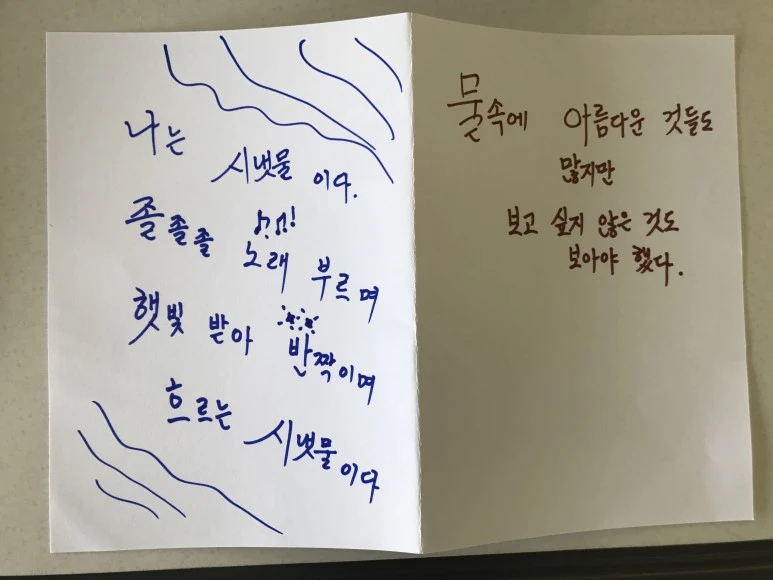 나는
시냇물 이다.
졸졸졸
노래 부르며
햇빛 받아 반짝이며
흐르는
시냇물이다
물속에 아름다운 것들도
많지만
보고 싶지 않은 것도
보아야 했다.